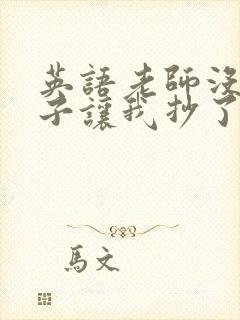 英語老師沒
子讓我抄了
馬文